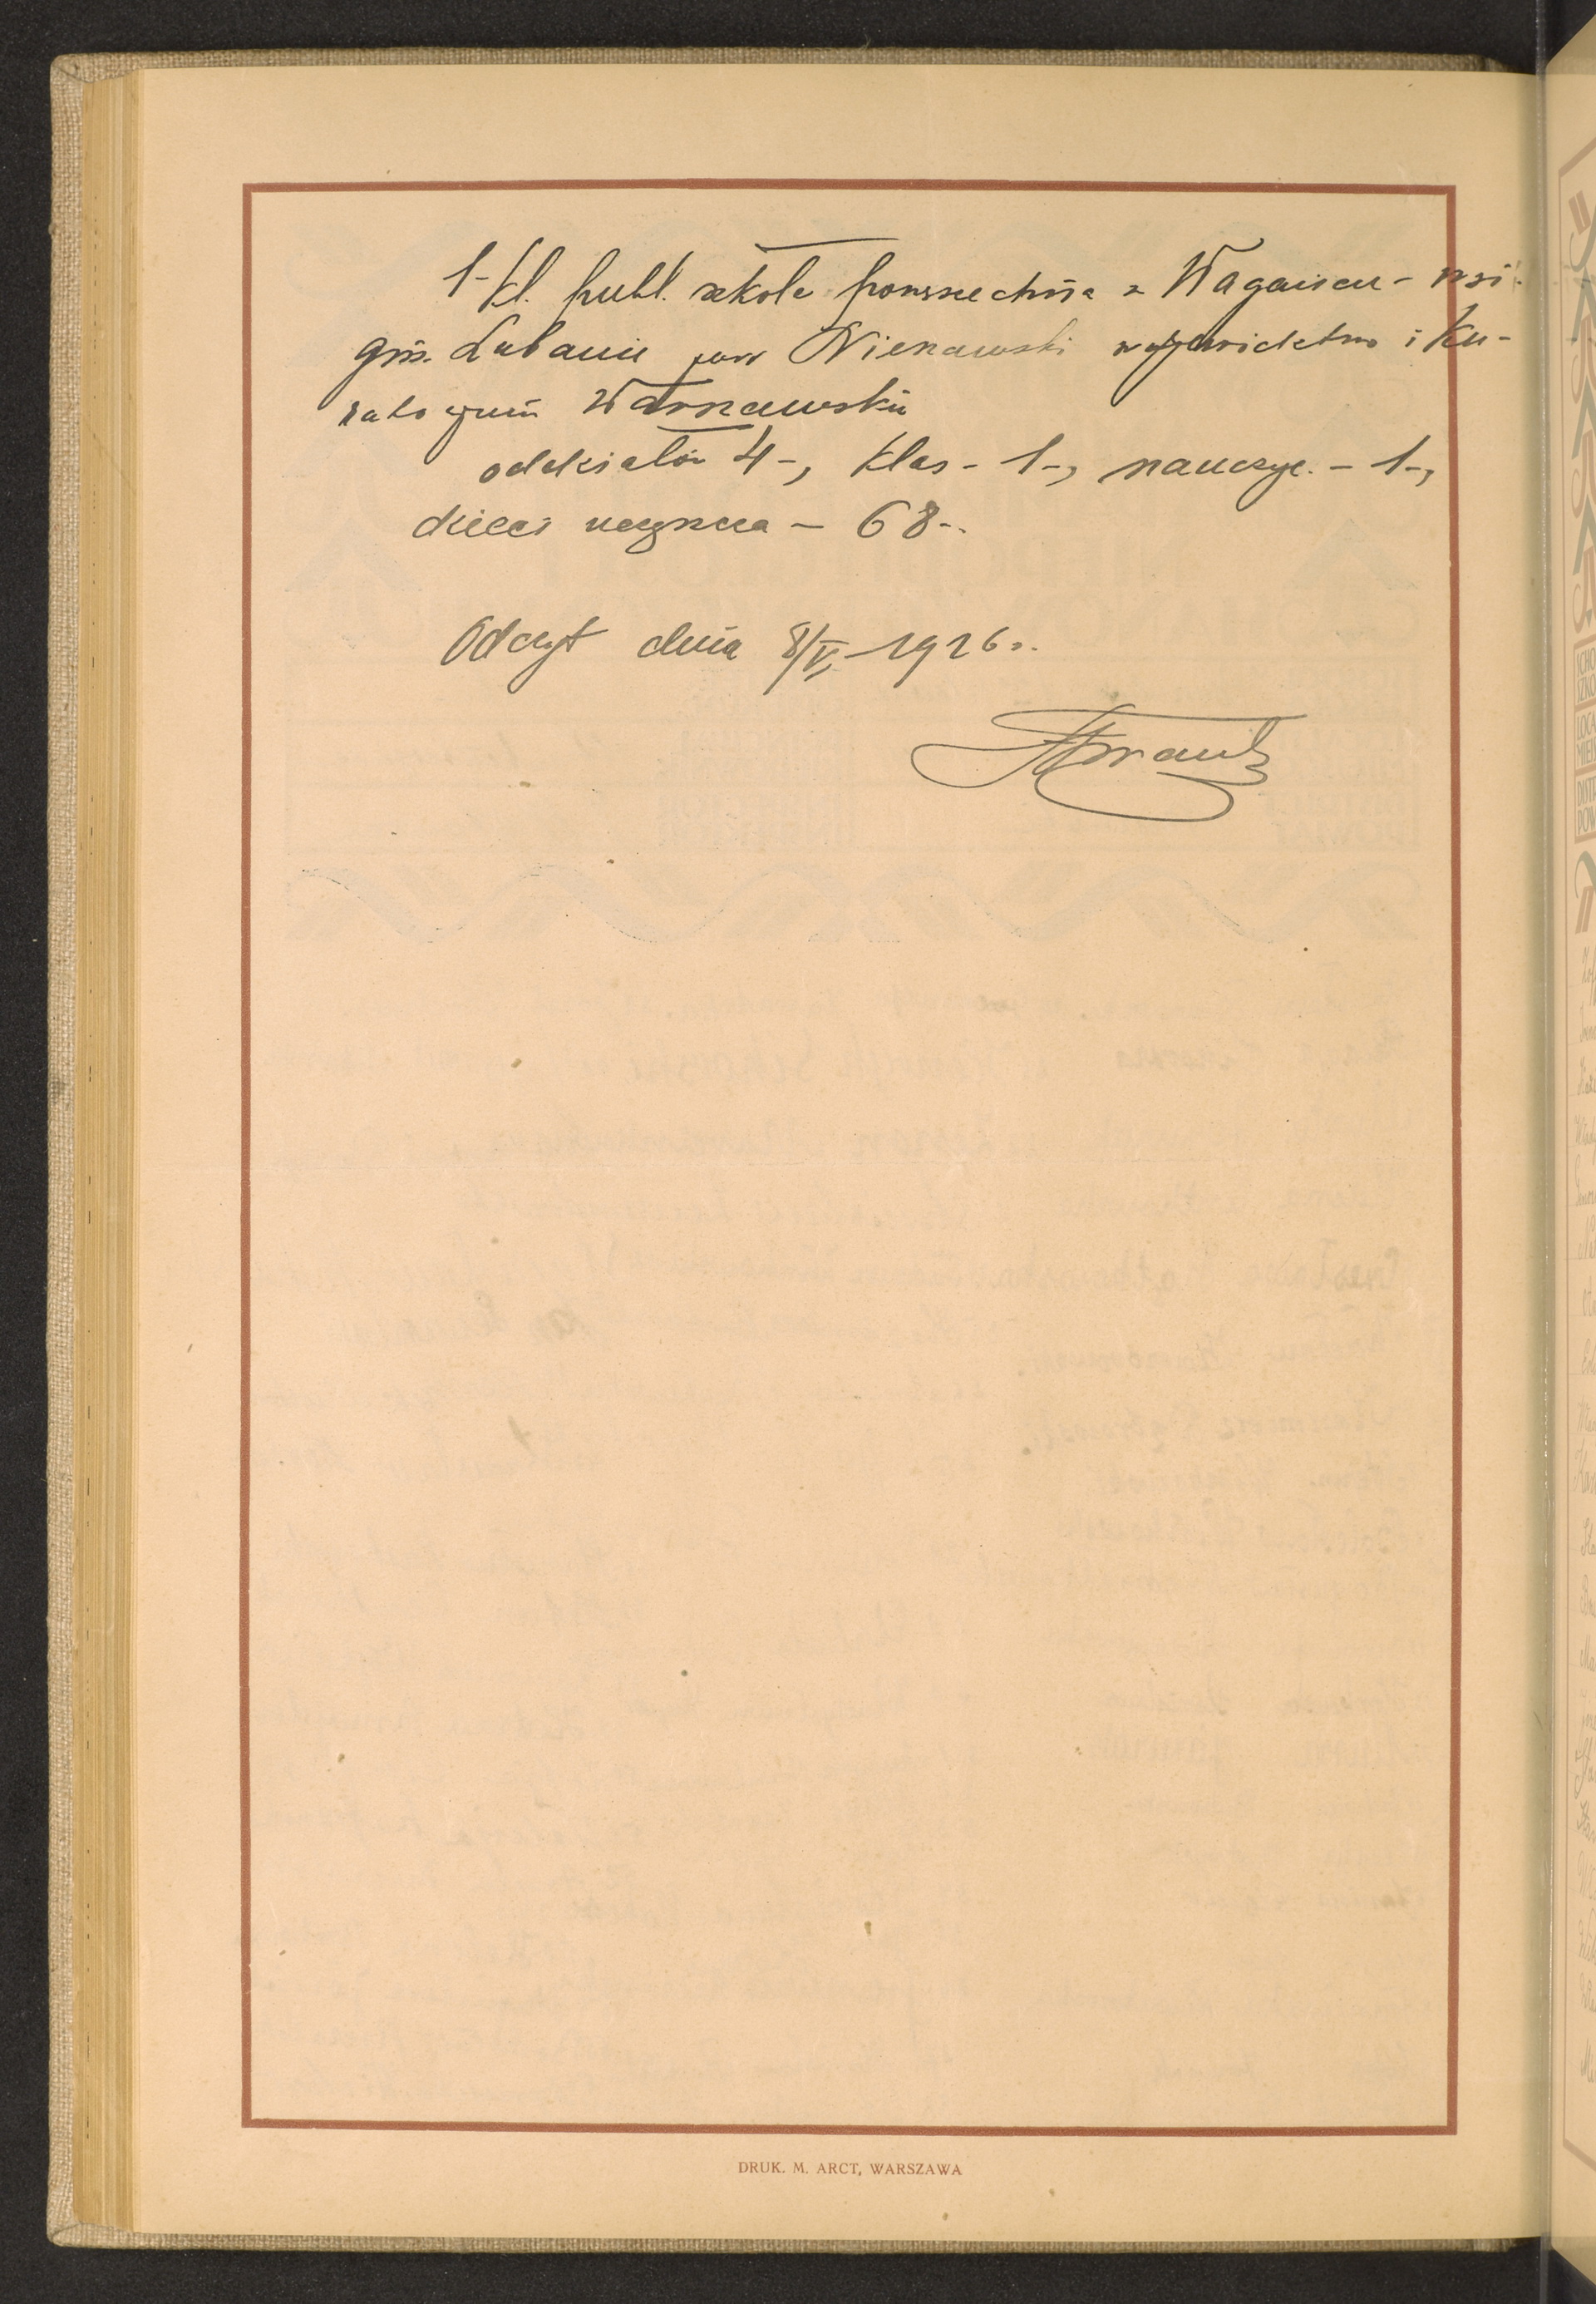 1-kl. publ. szkoła powszechna z Wagańcu - wsi
gm. Lubanie pow Nieszawski województwo i Ku-
ratorjum Warszawskie
oddziałów 4-, klas - 1-, nauczyc. - 1-,
dzieci uczęszcza - 68-.
Odczyt dnia 8/V-1926r.
DRUK. M. ARCT, WARSZAWA